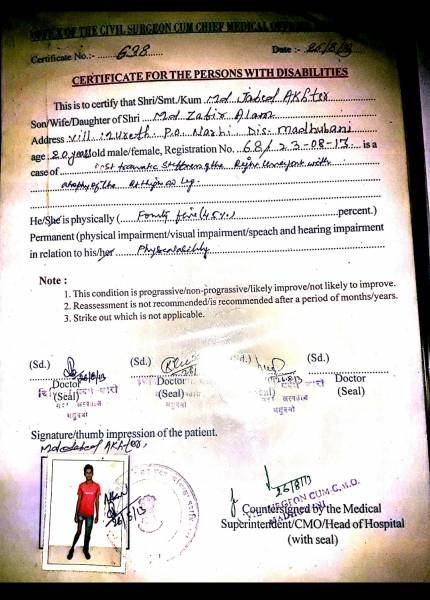 OFFICE OF THE CIVIL SURGEON CUM CHIEF MEDICAL
Certificate No.:- 638 Date :- 26/8/13
CERTIFICATE FOR THE PERSONS WITH DISABILITIES
This is to certify that Shri/Smt./Kum Md Jabed Akhter
Son/Wife/Daughter of Shri Md Zabir Alam
Address vill: P.O. Dis. madhubani
age 20 year old male/female, Registration No. 68/23-08-13 is a
case of Post traumatic of the Right with
of the Rt thigh leg.
He/She is physically ( Fourty five (45%) percent.)
Permanent (physical impairment/visual impairment/speach and hearing impairment
in relation to his/her
Note :
1. This condition is prograssive/non-prograssive/likely improve/not likely to improve.
2. Reassessment is not recommended/is recommended after a period of months/years.
3. Strike out which is not applicable.
(Sd.) (Sd.) (Sd.) (Sd.)
26/8/13 26.8.13
Doctor Doctor Doctor Doctor
(Seal) (Seal) (Seal) (Seal)
Signature/thumb impression of the patient.
Md Jabed AKhter
26/8/13
26/8/13
Countersigned by the Medical
Superintendent/CMO/Head of Hospital
(with seal)